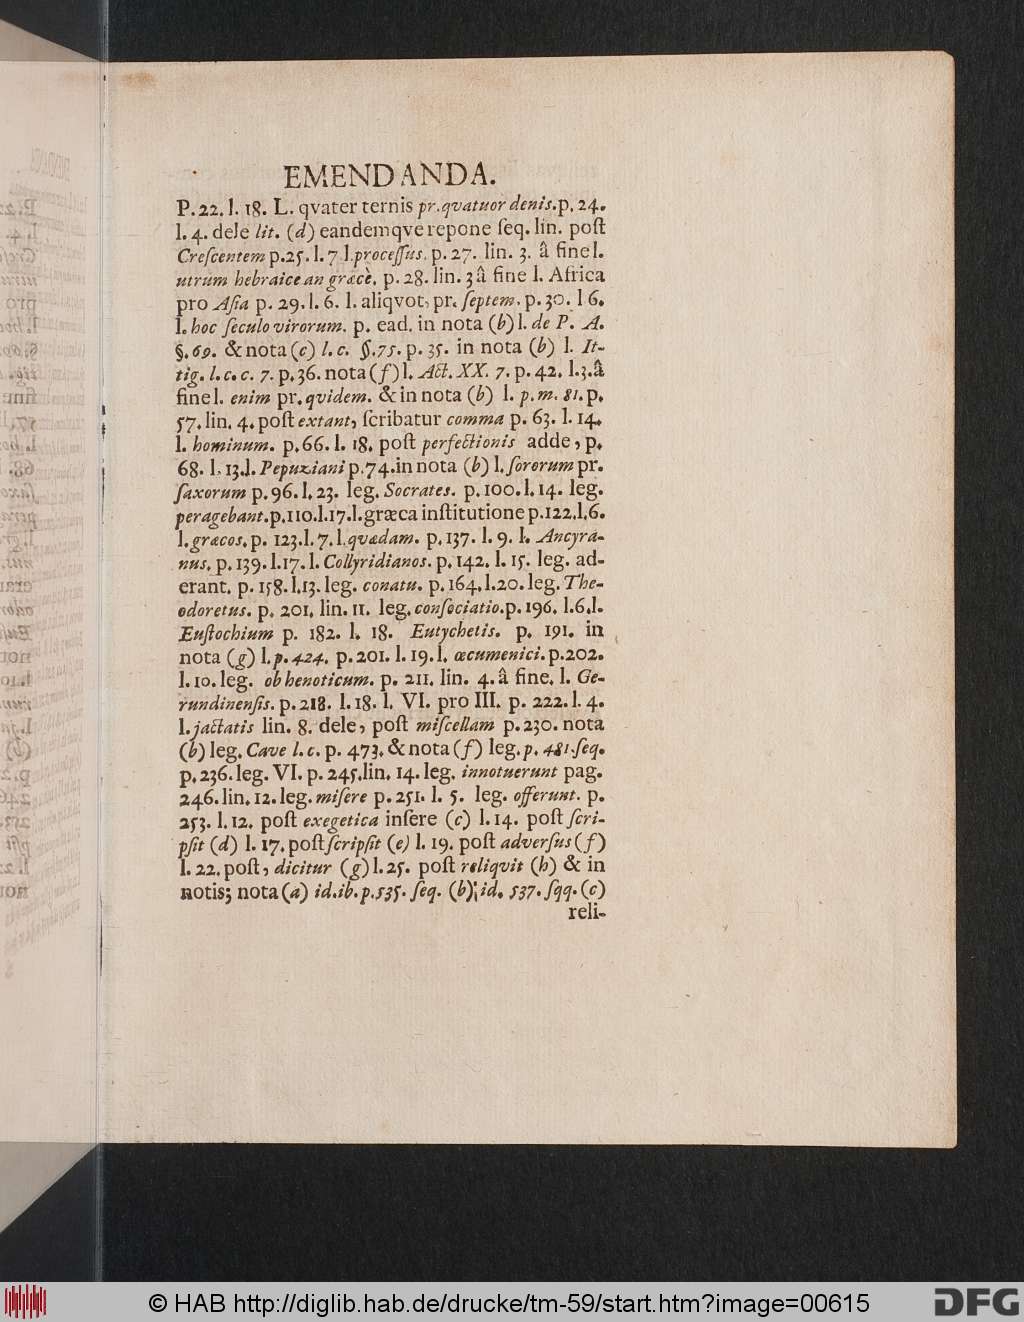 EMENDANDA.
P. 22. l. 18. L. qvater ternis pr. qvatuor denis. p. 24.
l. 4. dele lit. (d) eandemqve repone ſeq. lin. poſt
Creſcentem p. 25. l. 7 l. proceſſus. p. 27. lin. 3. â fine l.
utrum hebraice an græcè. p. 28. lin. 3 â fine l. Africa
pro Aſia p. 29. l. 6. l. aliqvot, pr. ſeptem. p. 30. l 6.
l. hoc ſeculo virorum. p. ead. in nota (b) l. de P. A.
§. 69. & nota (c) l. c. §. 75. p. 35. in nota (b) l. It-
tig. l. c. c. 7. p. 36. nota (f) l. Act. XX. 7. p. 42. l. 3. â
fine l. enim pr. qvidem. & in nota (b) l. p. m. 81. p.
57. lin. 4. poſt extant, ſcribatur comma p. 63. l. 14.
l. hominum. p. 66. l. 18. poſt perfectionis adde , p.
68. l. 13. l. Pepuziani p. 74. in nota (b) l. ſororum pr.
ſaxorum p. 96. l. 23. leg. Socrates. p. 100. l. 14. leg.
peragebant. p. 110. l. 17. l. græca inſtitutione p. 122. l. 6.
l. græcos. p. 123. l. 7. l. quædam. p. 137. l. 9. l. Ancyra-
nus. p. 139. l. 17. l. Collyridianos. p. 142. l. 15. leg. ad-
erant. p. 158. l. 13. leg. conatu. p. 164. l. 20. leg. The-
odoretus. p. 201. lin. 11. leg. conſociatio. p. 196. l. 6. l.
Euſtochium p. 182. l. 18. Eutychetis. p. 191. in
nota (g) l. p. 424. p. 201. l. 19. l. œcumenici. p. 202.
l. 10. leg. ob henoticum. p. 211. lin. 4. â fine. l. Ge-
rundinenſis. p. 218. l. 18. l. VI. pro III. p. 222. l. 4.
l. jactatis lin. 8. dele, poſt miſcellam p. 230. nota
(b) leg. Cave l. c. p. 473. & nota (f) leg. p. 481. ſeq.
p. 236. leg. VI. p. 245. lin. 14. leg. innotuerunt pag.
246. lin. 12. leg. miſere p. 251. l. 5. leg. offerunt. p.
253. l. 12. poſt exegetica inſere (c) l. 14. poſt ſcri-
pſit (d) l. 17. poſt ſcripſit (e) l. 19. poſt adverſus (f)
l. 22. poſt, dicitur (g) l. 25. poſt reliqvit (h) & in
notis; nota (a) id. ib. p. 535. ſeq. (b) id. 537. ſqq. (c)
reli-
© HAB http://diglib.hab.de/drucke/tm-59/start.htm?image=00615
DFG